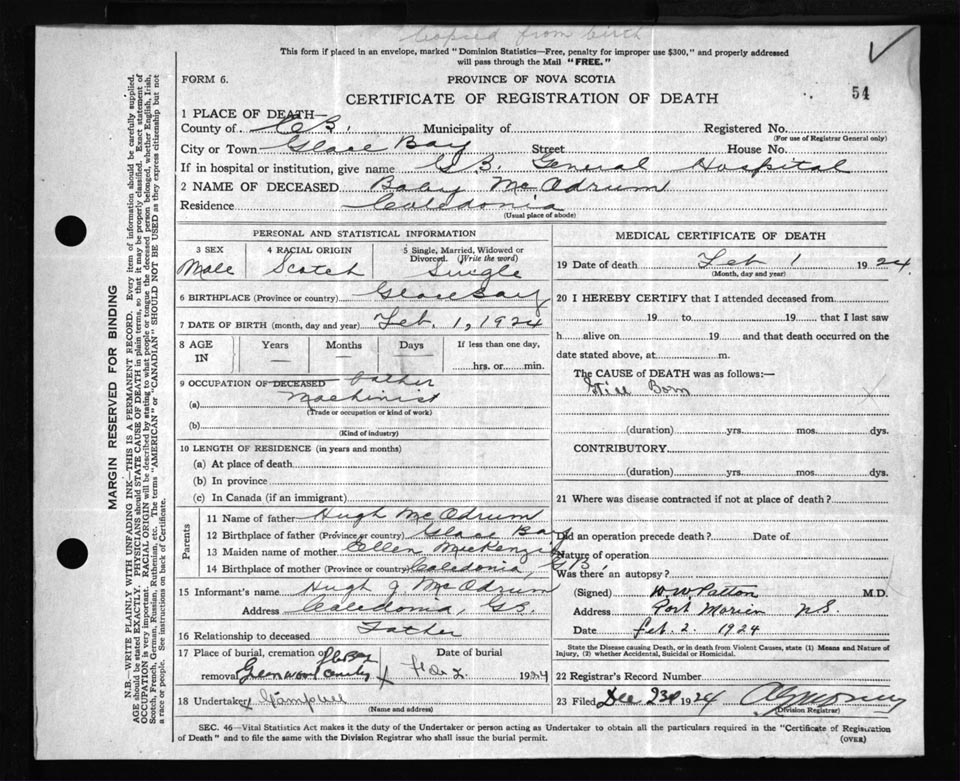 Copied from birth
This form if placed in an envelope, marked "Dominion Statistics—Free, penalty for improper use $300," and properly addressed
will pass through the Mail "FREE."
FORM 6.
PROVINCE OF NOVA SCOTIA
CERTIFICATE OF REGISTRATION OF DEATH
54
1 PLACE OF DEATH—
County of C.B. Municipality of Registered No.
(For use of Registrar General only)
City or Town Glace Bay Street House No.
If in hospital or institution, give name G.B. General Hospital
2 NAME OF DECEASED Baby McOdrum
Residence Caledonia
(Usual place of abode)
PERSONAL AND STATISTICAL INFORMATION
3 SEX
Male
4 RACIAL ORIGIN
Scotch
5 Single, Married, Widowed or
Divorced. (Write the word)
Single
6 BIRTHPLACE (Province or country) Glace Bay
7 DATE OF BIRTH (month, day and year) Feb. 1, 1924
8 AGE
IN
Years
—
Months
—
Days
—
If less than one day,
hrs. or min.
9 OCCUPATION OF DECEASED Father
(a) Machinist
(Trade or occupation or kind of work)
(b)
(Kind of industry)
10 LENGTH OF RESIDENCE (in years and months)
(a) At place of death
(b) In province
(c) In Canada (if an immigrant)
Parents
11 Name of father Hugh McOdrum
12 Birthplace of father (Province or country) Glace Bay
13 Maiden name of mother Ellen McKenzie
14 Birthplace of mother (Province or country) Caledonia, G.B.
15 Informant's name Hugh J McOdrum
Address Caledonia, G.B.
16 Relationship to deceased Father
17 Place of burial, cremation or
removal Greenwood
Date of burial
1924
18 Undertaker Campbell
(Name and address)
MEDICAL CERTIFICATE OF DEATH
19 Date of death Feb 1 1924
(Month, day and year)
20 I HEREBY CERTIFY that I attended deceased from
19 to 19 that I last saw
h alive on 19 and that death occurred on the
date stated above, at m.
The CAUSE OF DEATH was as follows:—
Still Born
(duration) yrs. mos. dys.
CONTRIBUTORY.
(duration) yrs. mos. dys.
21 Where was disease contracted if not at place of death?
Did an operation precede death? Date of
Nature of operation
Was there an autopsy?
(Signed) W.W. Patton M.D.
Address Port Morien N.S.
Date Feb. 2. 1924
State the Disease causing Death, or in death from Violent Causes, state (1) Means and Nature of
Injury, (2) whether Accidental, Suicidal or Homicidal.
22 Registrar's Record Number
23 Filed Dec 23d 1924
(Division Registrar)
SEC. 46—Vital Statistics Act makes it the duty of the Undertaker or person acting as Undertaker to obtain all the particulars required in the "Certificate of Registration
of Death" and to file the same with the Division Registrar who shall issue the burial permit.
(OVER)
MARGIN RESERVED FOR BINDING
N.B.—WRITE PLAINLY WITH UNFADING INK—THIS IS A PERMANENT RECORD. Every item of information should be carefully supplied.
AGE should be stated EXACTLY. PHYSICIANS should STATE CAUSE OF DEATH in plain terms, so that it may be properly classified. Exact statement of
OCCUPATION is very important. RACIAL ORIGIN will be described by stating to what people or tongue the deceased person belonged, whether English, Irish,
Scotch, French, German, Russian, Ruthenian, etc. The terms "AMERICAN" or "CANADIAN" SHOULD NOT BE USED as they express citizenship but not
a race or people. See instructions on back of Certificate.